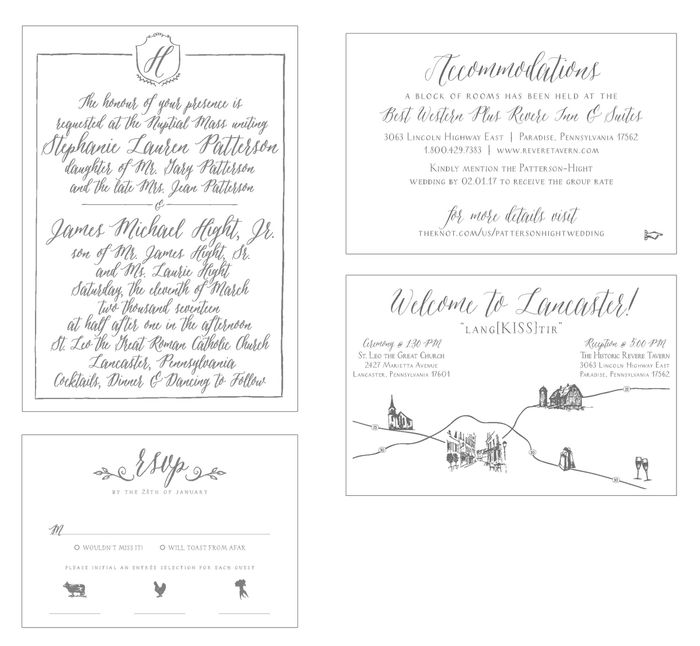 H
The honour of your presence is
requested at the Nuptial Mass uniting
Stephanie Lauren Patterson
daughter of Mr. Gary Patterson
and the late Mrs. Jean Patterson
&
James Michael Hight, Jr.
son of Mr. James Hight, Sr.
and Ms. Laurie Hight
Saturday, the eleventh of March
two thousand seventeen
at half after one in the afternoon
St. Leo the Great Roman Catholic Church
Lancaster, Pennsylvania
Cocktails, Dinner & Dancing to Follow
rsvp
BY THE 28TH OF JANUARY
M
WOULDN'T MISS IT! WILL TOAST FROM AFAR
PLEASE INITIAL AN ENTRÉE SELECTION FOR EACH GUEST
Accommodations
A BLOCK OF ROOMS HAS BEEN HELD AT THE
Best Western Plus Revere Inn & Suites
3063 LINCOLN HIGHWAY EAST | PARADISE, PENNSYLVANIA 17562
1.800.429.7383 | WWW.REVERETAVERN.COM
KINDLY MENTION THE PATTERSON-HIGHT
WEDDING BY 02.01.17 TO RECEIVE THE GROUP RATE
for more details visit
THEKNOT.COM/US/PATTERSONHIGHTWEDDING
Welcome to Lancaster!
"LANG[KISS]TIR"
Ceremony @ 1:30 PM
ST. LEO THE GREAT CHURCH
2427 MARIETTA AVENUE
LANCASTER, PENNSYLVANIA 17601
Reception @ 5:00 PM
THE HISTORIC REVERE TAVERN
3063 LINCOLN HIGHWAY EAST
PARADISE, PENNSYLVANIA 17562